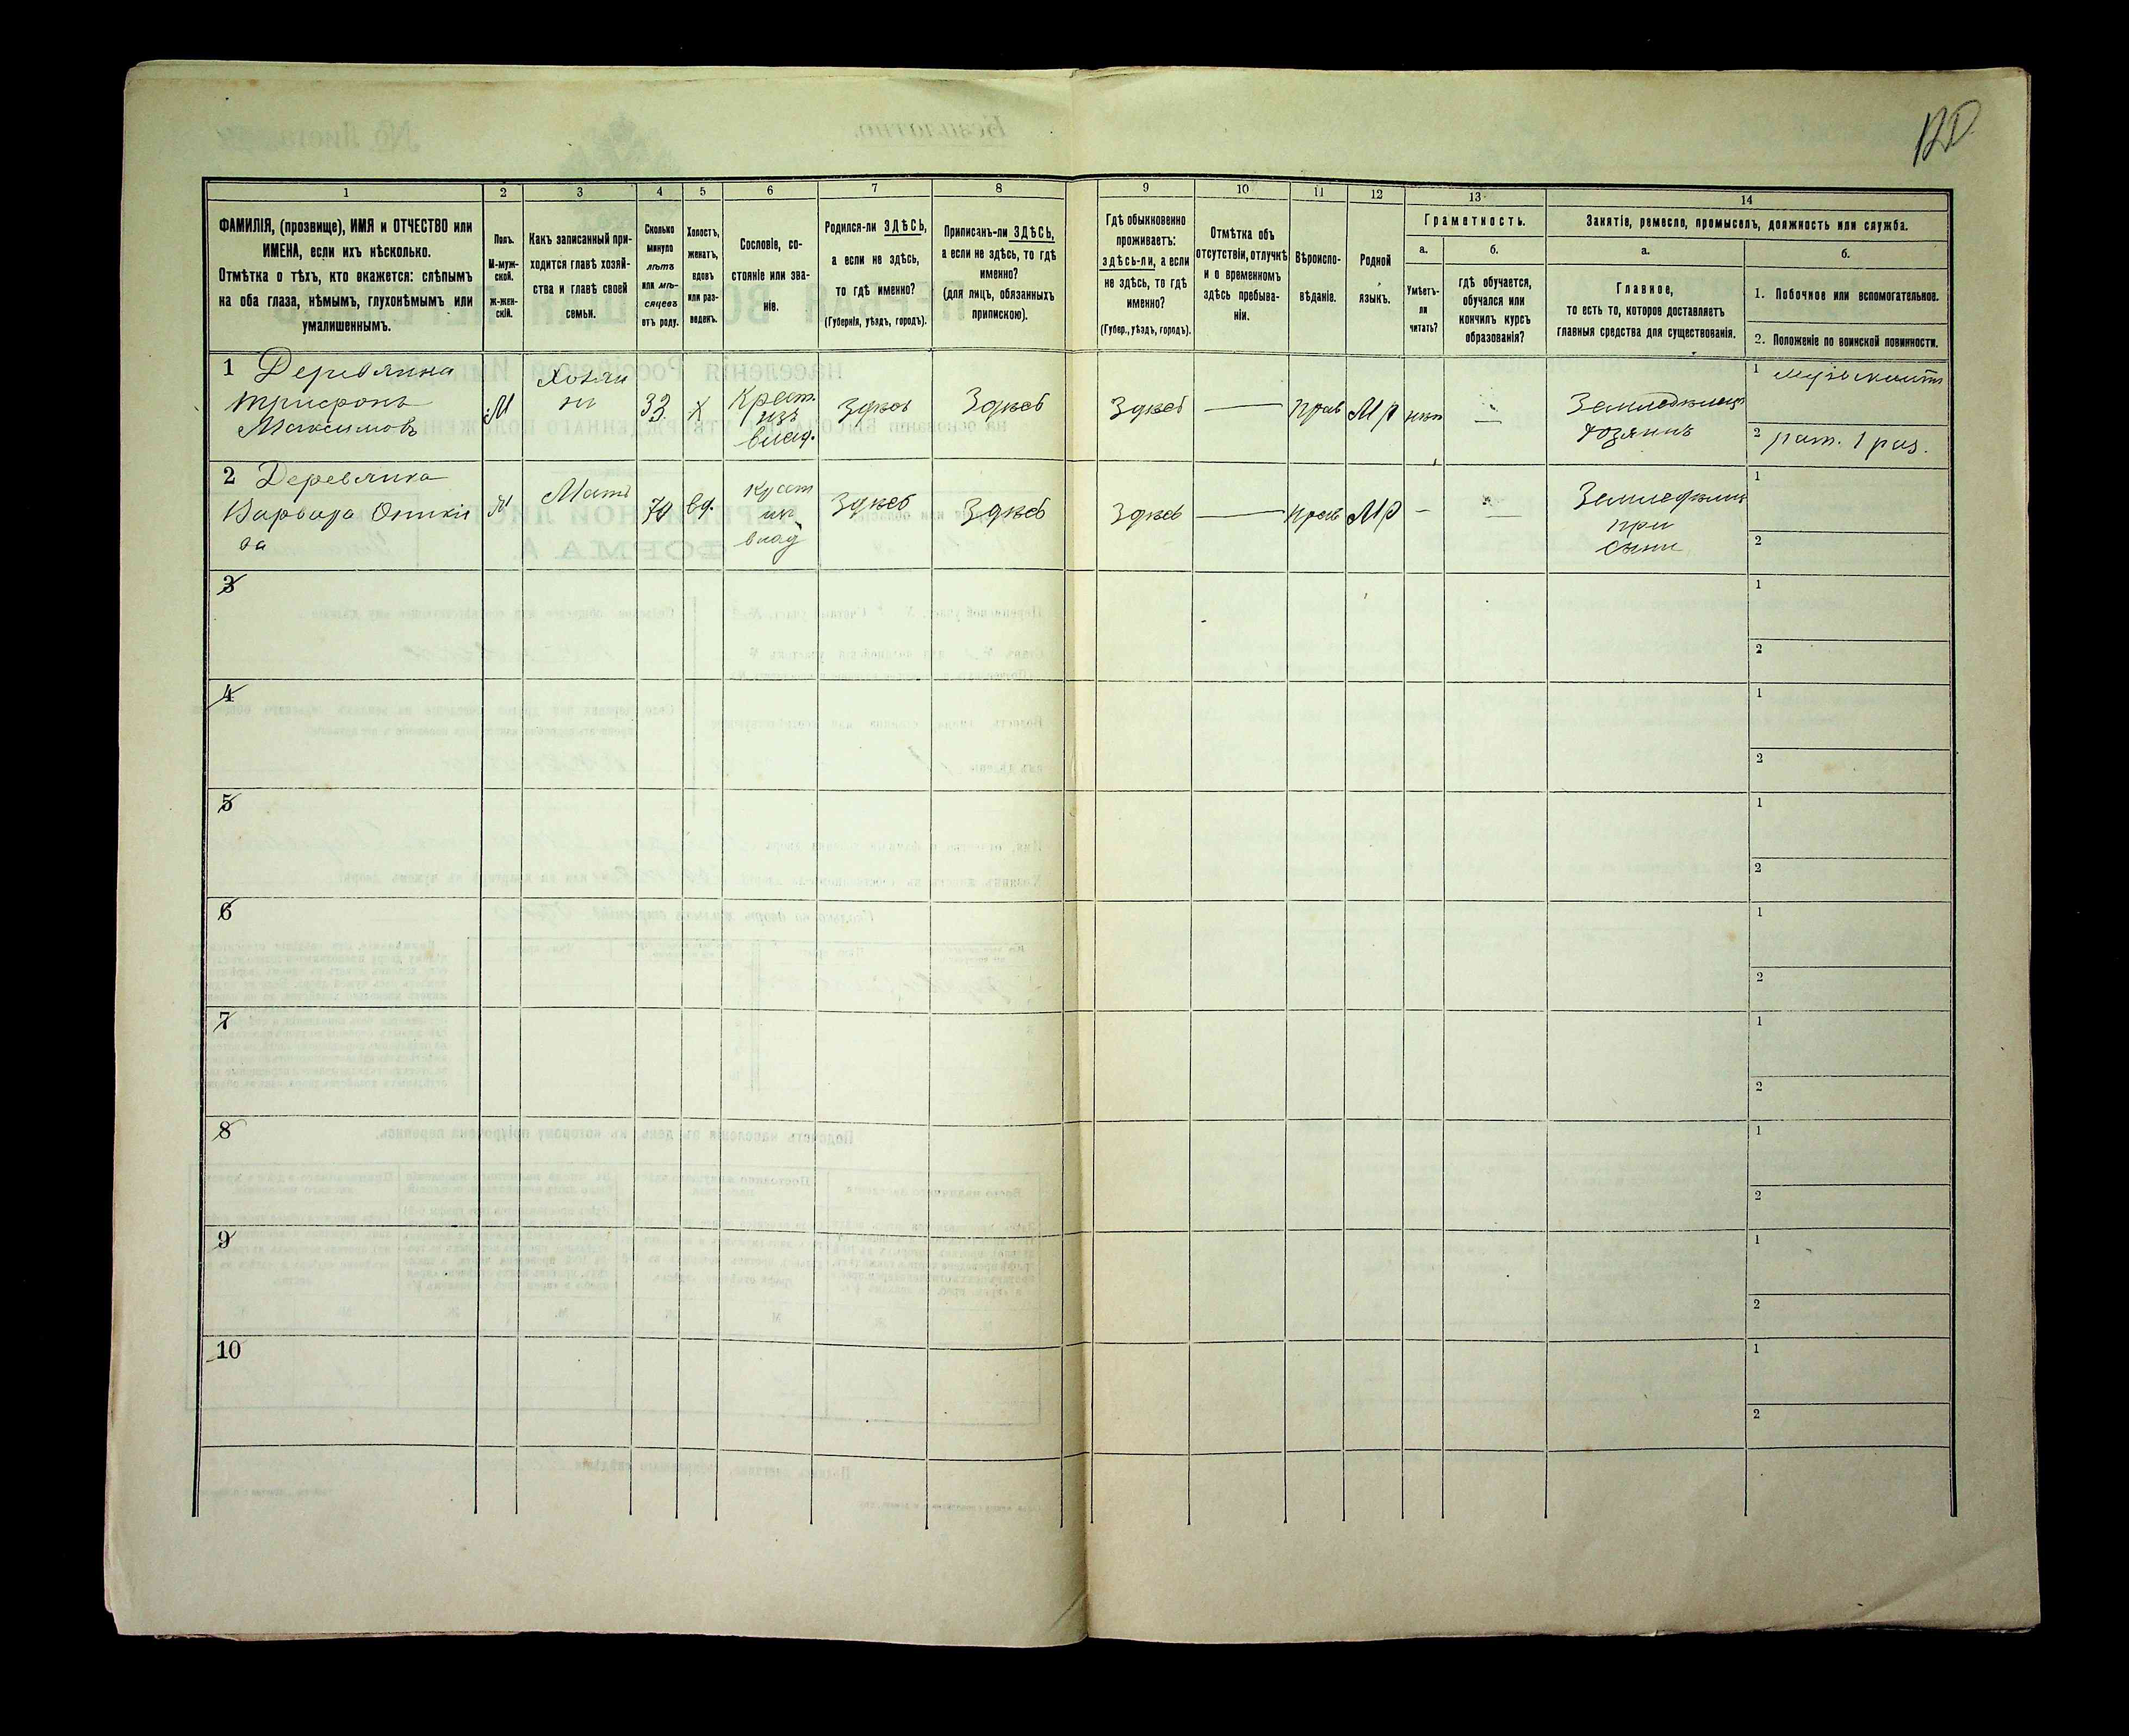 120
1
2
3
4
5
6
7
8
9
10
11
12
13
14
ФАМИЛІЯ, (прозвище), ИМЯ и ОТЧЕСТВО или
ИМЕНА, если ихъ нѣсколько.
Отмѣтка о тѣхъ, кто окажется: слѣпымъ
на оба глаза, нѣмымъ, глухонѣмымъ или
умалишеннымъ.
Полъ.
М-муж-
ской.
ж-жен-
скій.
Какъ записанный при-
ходится главѣ хозяй-
ства и главѣ своей
семьи.
Сколько
минуло
лѣтъ
или мѣ-
сяцевъ
отъ роду.
Холостъ,
женатъ,
вдовъ
или раз-
веденъ.
Сословіе, со-
стояніе или зва-
ніе.
Родился-ли ЗДѢСЬ,
а если не здѣсь,
то гдѣ именно?
(Губернія, уѣздъ, городъ).
Приписанъ-ли ЗДѢСЬ,
а если не здѣсь, то гдѣ
именно?
(для лицъ, обязанныхъ
припискою).
Гдѣ обыкновенно
проживаетъ:
здѣсь-ли, а если
не здѣсь, то гдѣ
именно?
(Губер., уѣздъ, городъ).
Отмѣтка объ
отсутствіи, отлучкѣ
и о временномъ
здѣсь пребыва-
ніи.
Вѣроиспо-
вѣданіе.
Родной
языкъ.
Грамотность.
а.
Умѣетъ-
ли
читать?
б.
гдѣ обучается,
обучался или
кончилъ курсъ
образованія?
Занятіе, ремесло, промыселъ, должность или служба.
а.
Главное,
то есть то, которое доставляетъ
главныя средства для существованія.
б.
1. Побочное или вспомогательное.
2. Положеніе по воинской повинности.
1 Деревянка
Трифонъ
Максимовъ
М
Хозяи
нъ
33
Х
Крест.
изъ
влад.
Здѣсь
Здѣсь
Здѣсь
—
прав
М р
нѣт
—
Земледѣлецъ
хозяинъ
1 музыкантъ
2 рат. 1 раз.
2 Деревянка
Варвара
Мать
70
вд.
крест
из
влад
Здѣсь
Здѣсь
Здѣсь
—
прав
М р
—
—
при
сынѣ
1
2
3
1
2
4
1
2
5
1
2
6
1
2
7
1
2
8
1
2
9
1
2
10
1
2